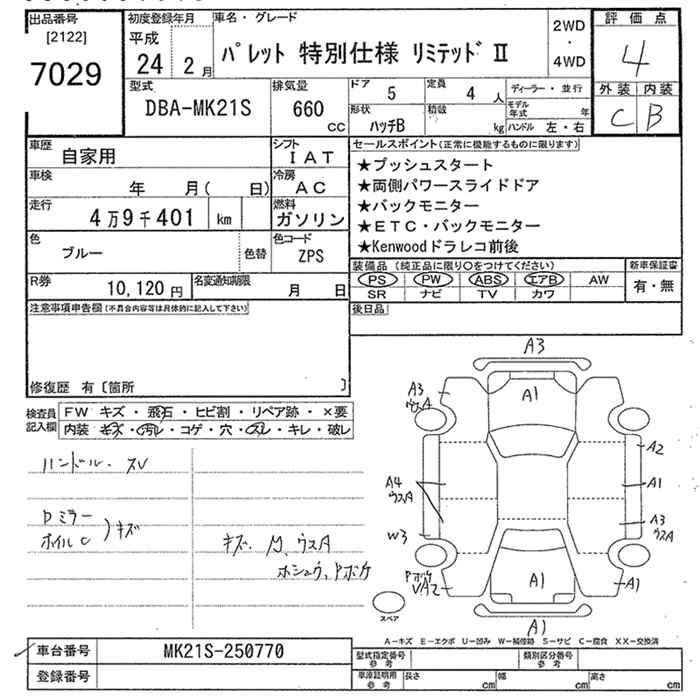 出品番号
[2122]
7029
初度登録年月
平成
24 2月
車名・グレード
パレット 特別仕様 リミテッドⅡ
2WD
・
4WD
評価点
4
外装 内装
C B
型式
DBA-MK21S
排気量
660
CC
ドア
5
定員
4人
ディーラー・並行
形状
ハッチB
積載
kg
モデル年式
年
ハンドル 左・右
車歴
自家用
シフト
IAT
車検
年 月( 日)
冷房
AC
走行
4万9千401 km
燃料
ガソリン
色
ブルー
色替
色コード
ZPS
R券
10,120円
名変通知期限
月 日
セールスポイント(正常に機能するものに限ります)
★プッシュスタート
★両側パワースライドドア
★バックモニター
★ETC・バックモニター
★Kenwoodドラレコ前後
装備品 (純正品に限り○をつけてください)
PS PW ABS エアB AW
SR ナビ TV カワ
新車保証書
有・無
後日品
注意事項申告欄(不具合内容等は具体的に記入して下さい)
修復歴 有〔箇所 〕
検査員記入欄
FW キズ・飛石・ヒビ割・リペア跡・×要
内装 キズ・汚れ・コゲ・穴・スレ・キレ・破レ
ハンドル・スレ
Dミラー
ホイルC
キズ
キズ、M、ウスA
ホシュウ、Pボケ
A3
A3
ウスA
A1
A2
A4
ウスA
A1
A3
ウスA
W3
Pボケ
A2
A1
A1
A1
スペア
A-キズ E-エクボ U-凹み W-補修跡 S-サビ C-腐食 XX-交換済
車台番号
MK21S-250770
登録番号
型式指定番号
参考
類別区分番号
参考
車庫証明用
参考
長さ
cm
幅
cm
高さ
cm